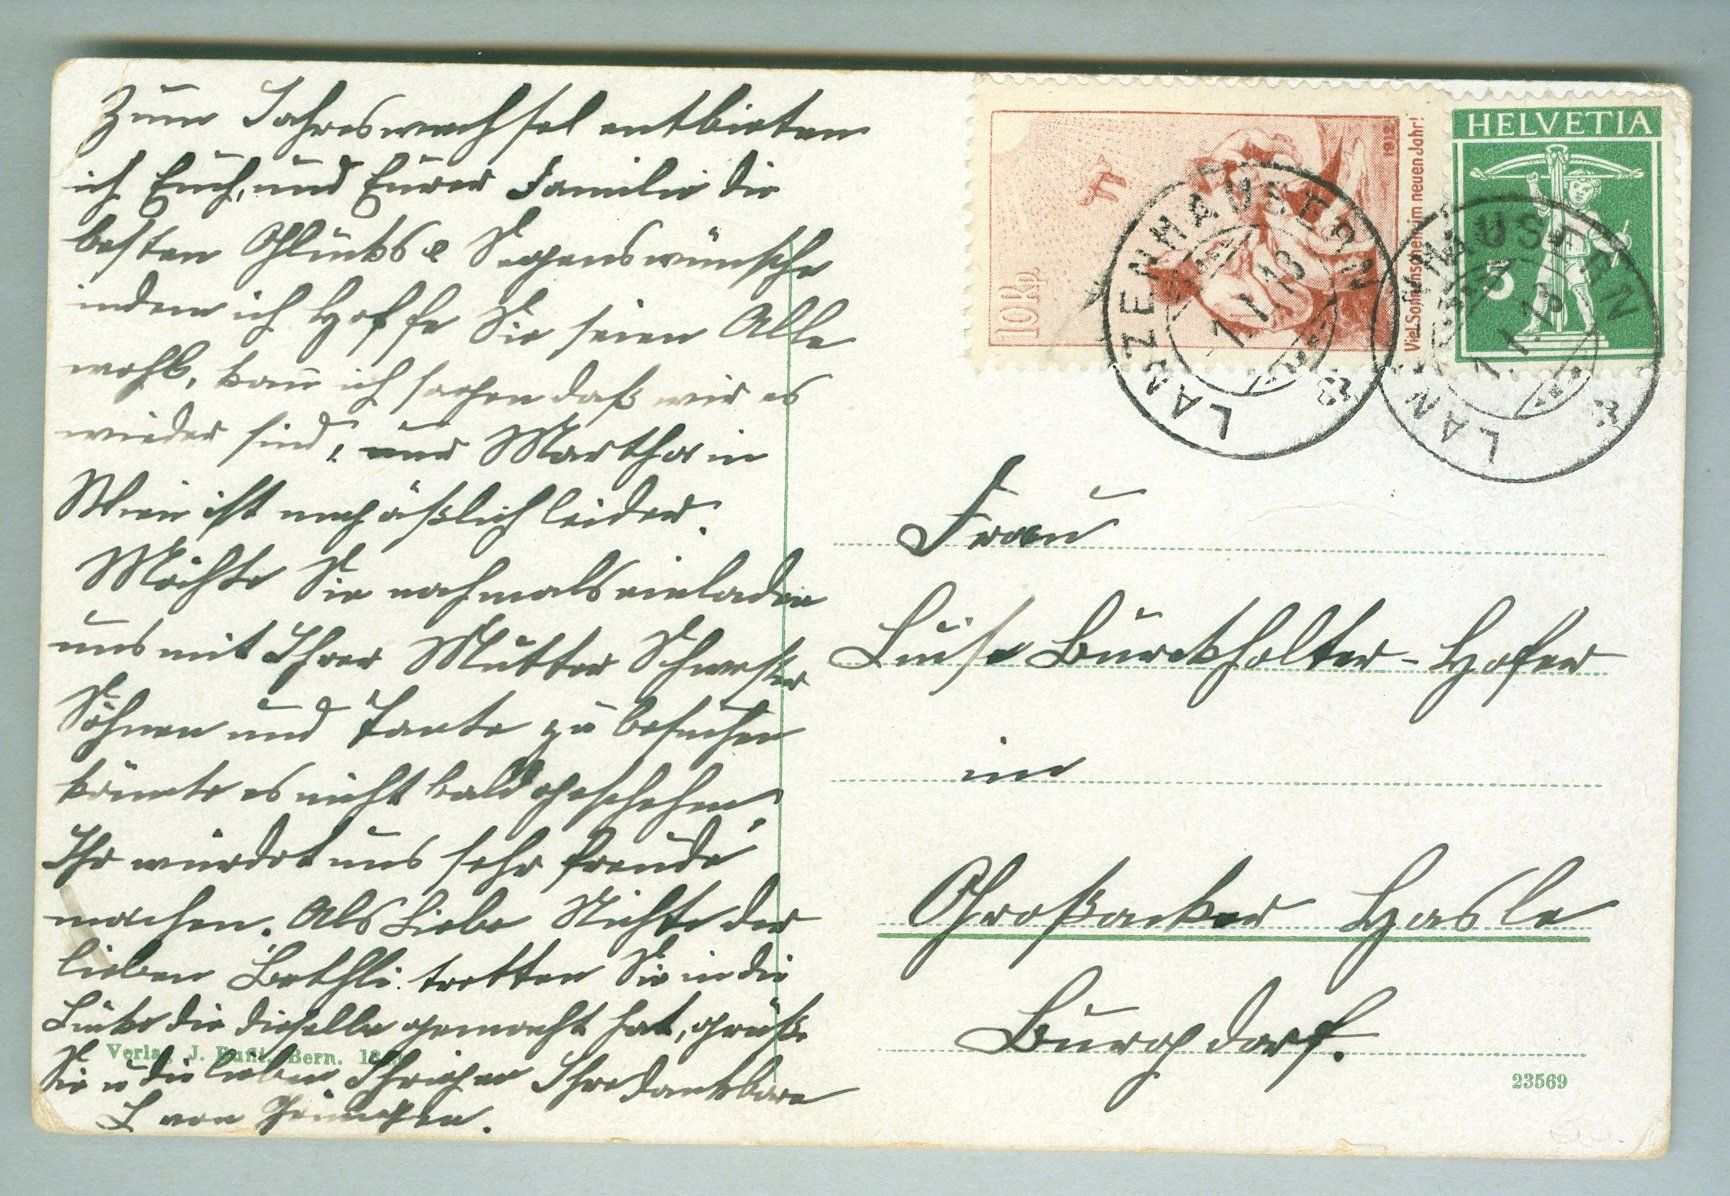 Zum Jahreswechsel entbieten
ich Euch, und Eurer Familie die
besten Glücks & Segenswünsche
indem ich Hoffe Sie seien Alle
wohl, kann ich sagen daß wir es
wieder sind, und Martha in
Wien ist unpäßlich leider.
Möchte Sie nochmals einladen
uns mit Ihrer Mutter Schwester
Söhnen und Tante zu besuchen
könnte es nicht bald geschehen,
Ihr würdet uns sehr freude
machen. Als Liebe Nichte der
lieben Bethli tretten Sie in die
Lücke die dieselbe gemacht hat, grüße
Sie u die lieben Ihrigen Ihre dankbare
von
Verlag J. Bern.
10 Rp
1912
Viel Sonnenschein im neuen Jahr!
HELVETIA
5
LANZENHÄUSERN
1.I.13
LANZENHÄUSERN
1.I.13
Frau
Luise Burckhalter-Hofer
in
Großacker Hasle
Burgdorf.
23569